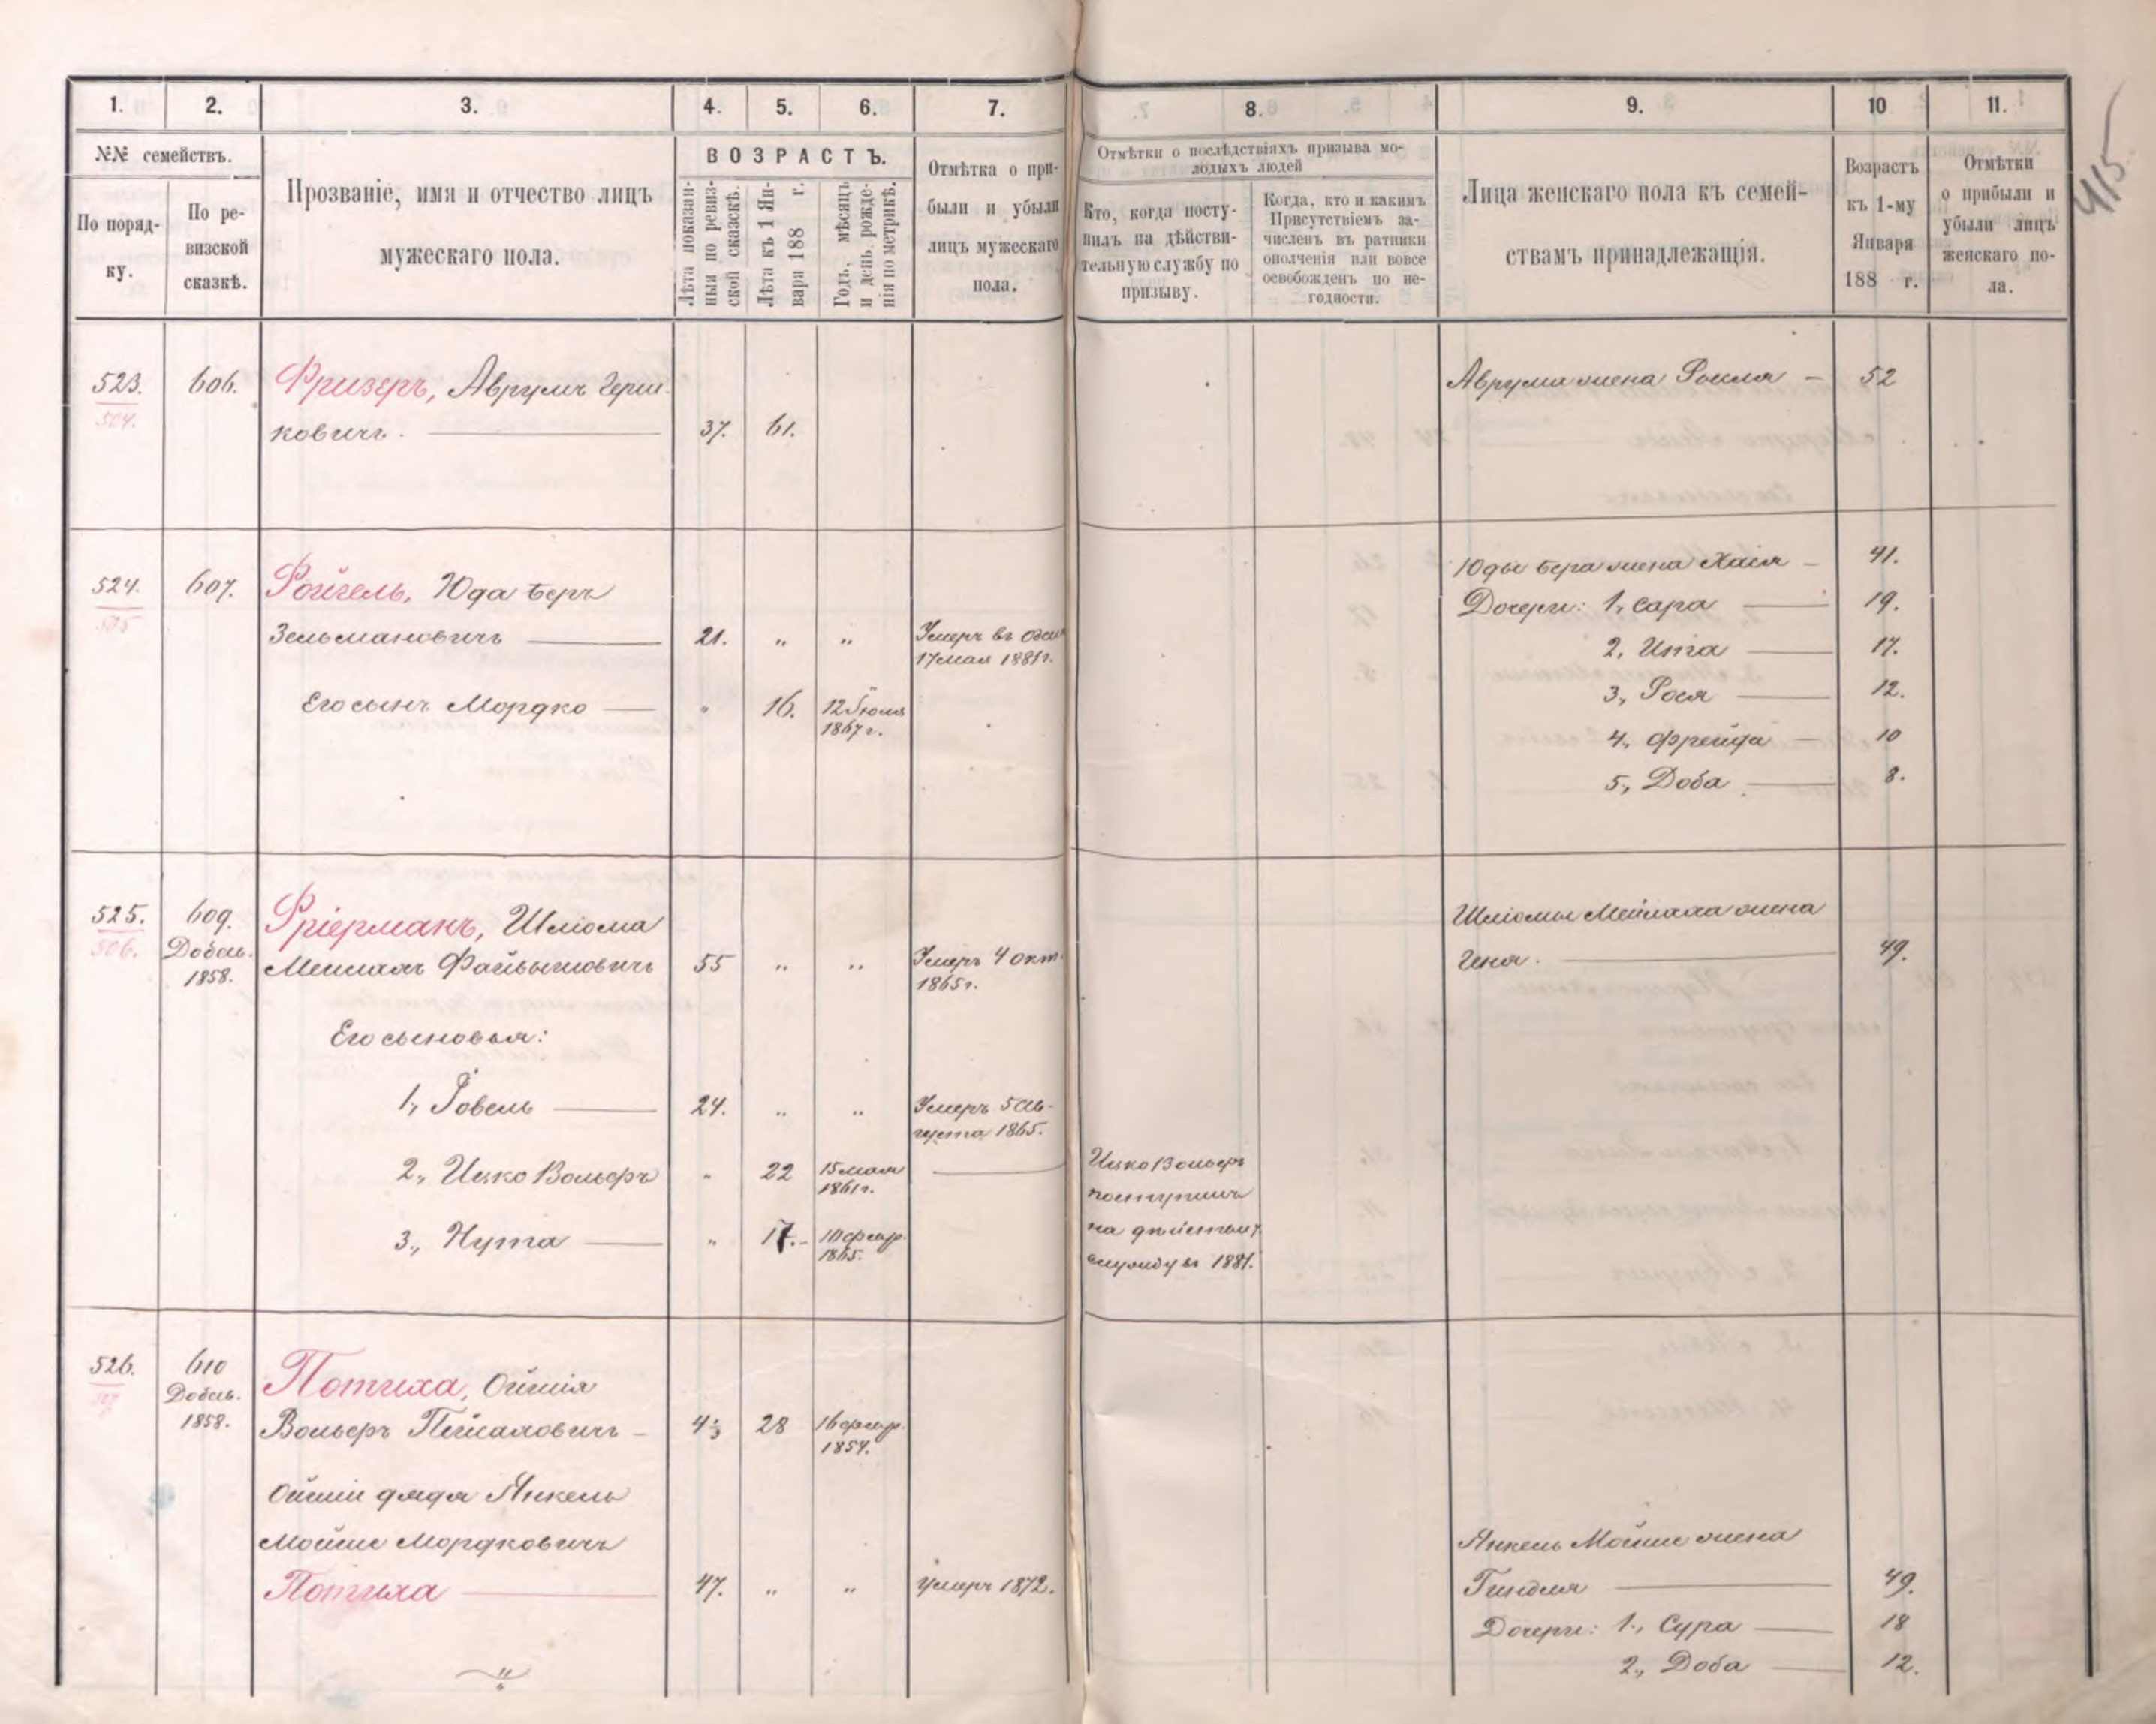 415
1. 2. 3. 4. 5. 6. 7. 8. 9. 10 11.
№№ семействъ.
По поряд-
ку.
По ре-
визской
сказкѣ.
Прозваніе, имя и отчество лицъ
мужескаго пола.
ВОЗРАСТЪ.
Лѣта показан-
ныя по ревиз-
ской сказкѣ.
Лѣта къ 1 Ян-
варя 188 г.
Годъ, мѣсяцъ
и день, рожде-
нія по метрикѣ.
Отмѣтка о при-
были и убыли
лицъ мужескаго
пола.
Отмѣтки о послѣдствіяхъ призыва мо-
лодыхъ людей
Кто, когда посту-
пилъ на дѣйстви-
тельную службу по
призыву.
Когда, кто и какимъ
Присутствіемъ за-
численъ въ ратники
ополченія или вовсе
освобожденъ по не-
годности.
Лица женскаго пола къ семей-
ствамъ принадлежащія.
Возрастъ
къ 1-му
Января
188 г.
Отмѣтки
о прибыли и
убыли лицъ
женскаго по-
ла.
523. 606. Фризеръ, Аврумъ Герш-
504.
ковичъ. 37. 61.
Аврума жена Роиля — 52
524. 607. Фойгель, Юда Беръ
505
Зельмановичъ 21. „ „ Умеръ въ
17 мая 1881 г.
Его сынъ Мордко — „ 16. 12 Іюля
1867 г.
Юды Бера жена Хаія — 41.
Дочери: 1, Сара — 19.
2, Ита — 17.
3, Рося — 12.
4, Фрейда — 10
5, Доба — 8.
525. 609. Фріерманъ, Шліома
506. Добав.
1858.
Мейлахъ Файвышовичъ 55 „ „ Умеръ 4 окт.
1865 г.
Его сыновья:
1, Іовель — 24. „ „ Умеръ 5 Ав-
густа 1865.
2, Ицко Вольфъ „ 22 15 мая
1861 г.
3, Нута — „ 17. 10 февр.
1865.
Ицко Вольфъ
поступилъ
на дѣйствит.
службу въ 1881.
Шліомы Мейлаха жена
Геня. — 49.
526. 610 Потиха, Ойшія
507 Добав.
1858.
Вольфъ Пейсаховичъ — 4 28 16 февр.
1854.
Ойшіи дядя Янкель
Мойше Мордковичъ
Потиха — 47. „ „ Умеръ 1872.
Янкель Мойше жена
Гиндля — 49.
Дочери: 1, Сура — 18
2, Доба — 12.